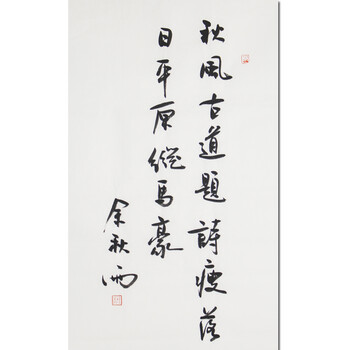 秋風古道題詩瘦落
日平原縱馬豪
余秋雨